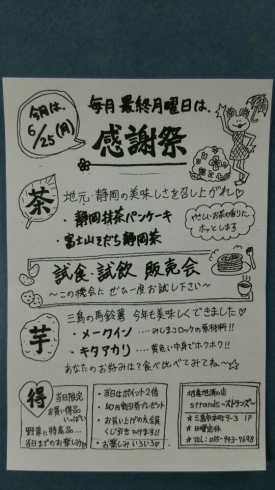 今月は、
6/25(月)
毎月最終月曜日は、
感謝祭
茶
地元・静岡の美味しさを召し上がれ♡
・静岡抹茶パンケーキ
・富士山そだち静岡茶
やさしいお茶の香りに
ホッとします
試食・試飲 販売会
〜この機会に ぜひ一度お試し下さい〜
芋
三島の馬鈴薯 今年も美味しくできました♡
・メークイン ・・・みしまコロッケの原材料!!
・キタアカリ ・・・黄色い中身でホクホク!!
あなたのお好みは?食べ比べてみてね〜☆
得
当日限定
お買い得品
いっぱい
野菜に特産品…
当日までのお楽しみ
・当日はポイント2倍
・お買い上げの方全員
くじ引きつけます!!
・お楽しみいろいろ♡
地産地消の店
strands〜ストランズ〜
★三島市本町9-3 1F
★日曜定休
★TEL:055-943-9698